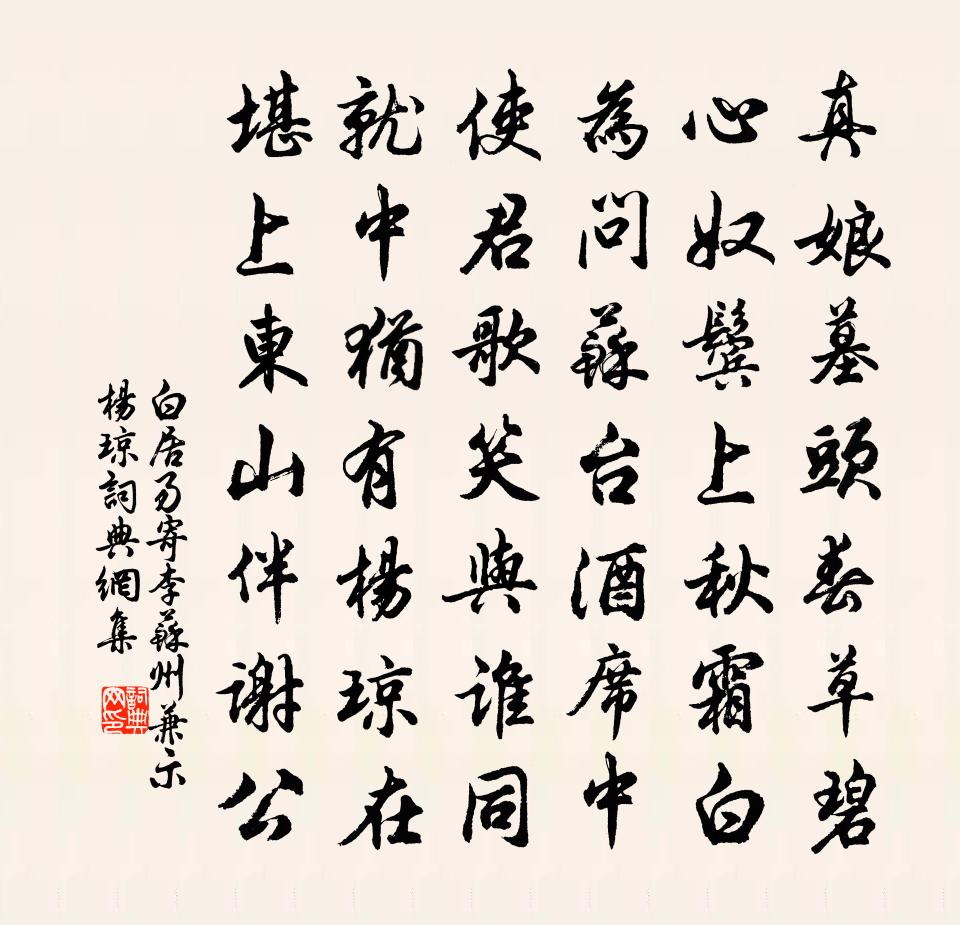 真娘墓頭春草碧
心奴鬓上秋霜白
為問蘇台酒席中
使君歌笑與誰同
就中猶有楊琼在
堪上東山伴谢公
白居易寄李蘇州兼示
楊琼詞典網集
詞典
网印